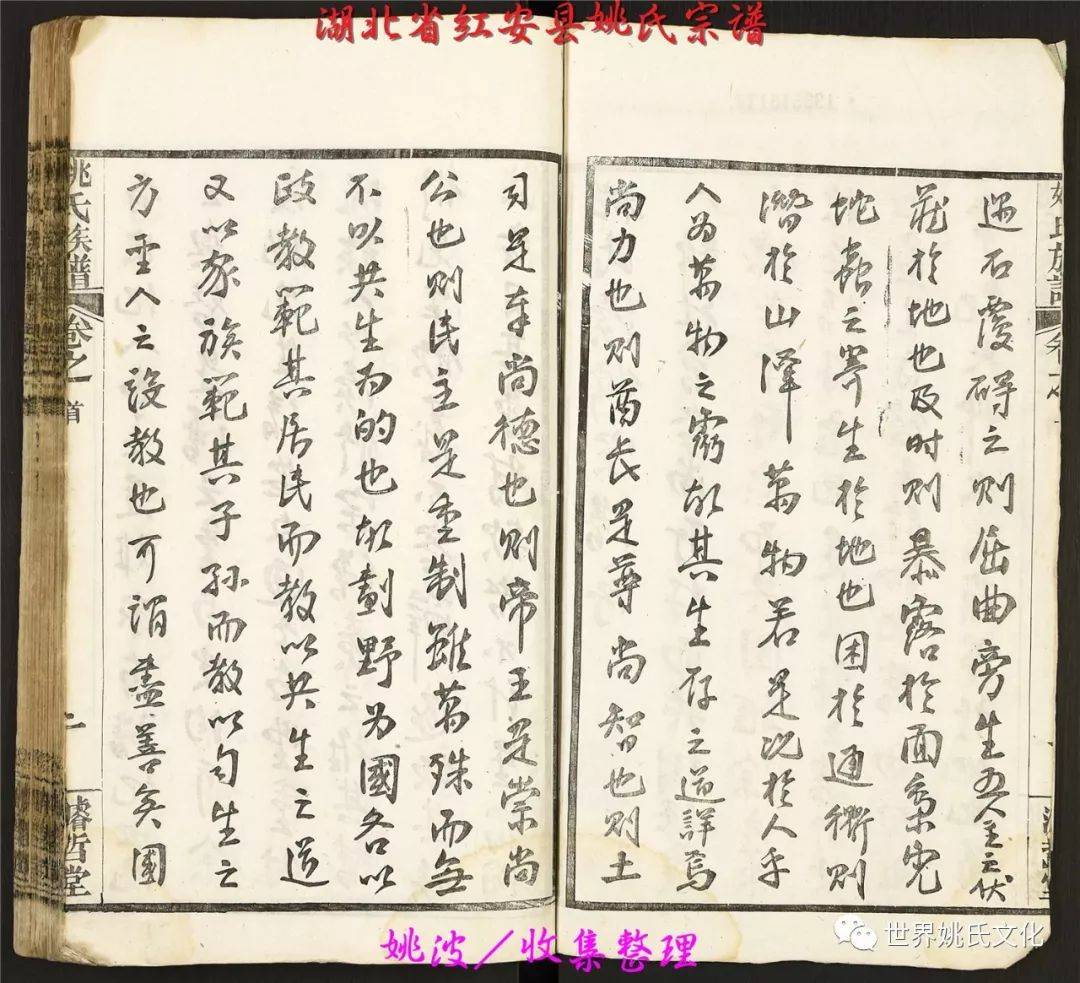 湖北省红安县姚氏宗谱
遇石覆碍之则屈曲旁生五金之伏
藏於地也及时则暴露於面豸
蛇蟲之寄生於地也困於通衢则
潛於山澤萬物若是况於人乎
人为萬物之靈故其生存之道詳焉
尚力也则酋长是尊尚智也则土
司是奉尚德也则帝王是崇尚
公也则民主是重制雖萬殊而無
不以共生为的也故劃野为國各以
政教範其居民而教以共生之道
又以家族範其子孙而教以自生之
方聖人之設教也可謂盡善矣國
姚氏族譜
卷之一
首
二
濬哲堂
姚波/收集整理
世界姚氏文化